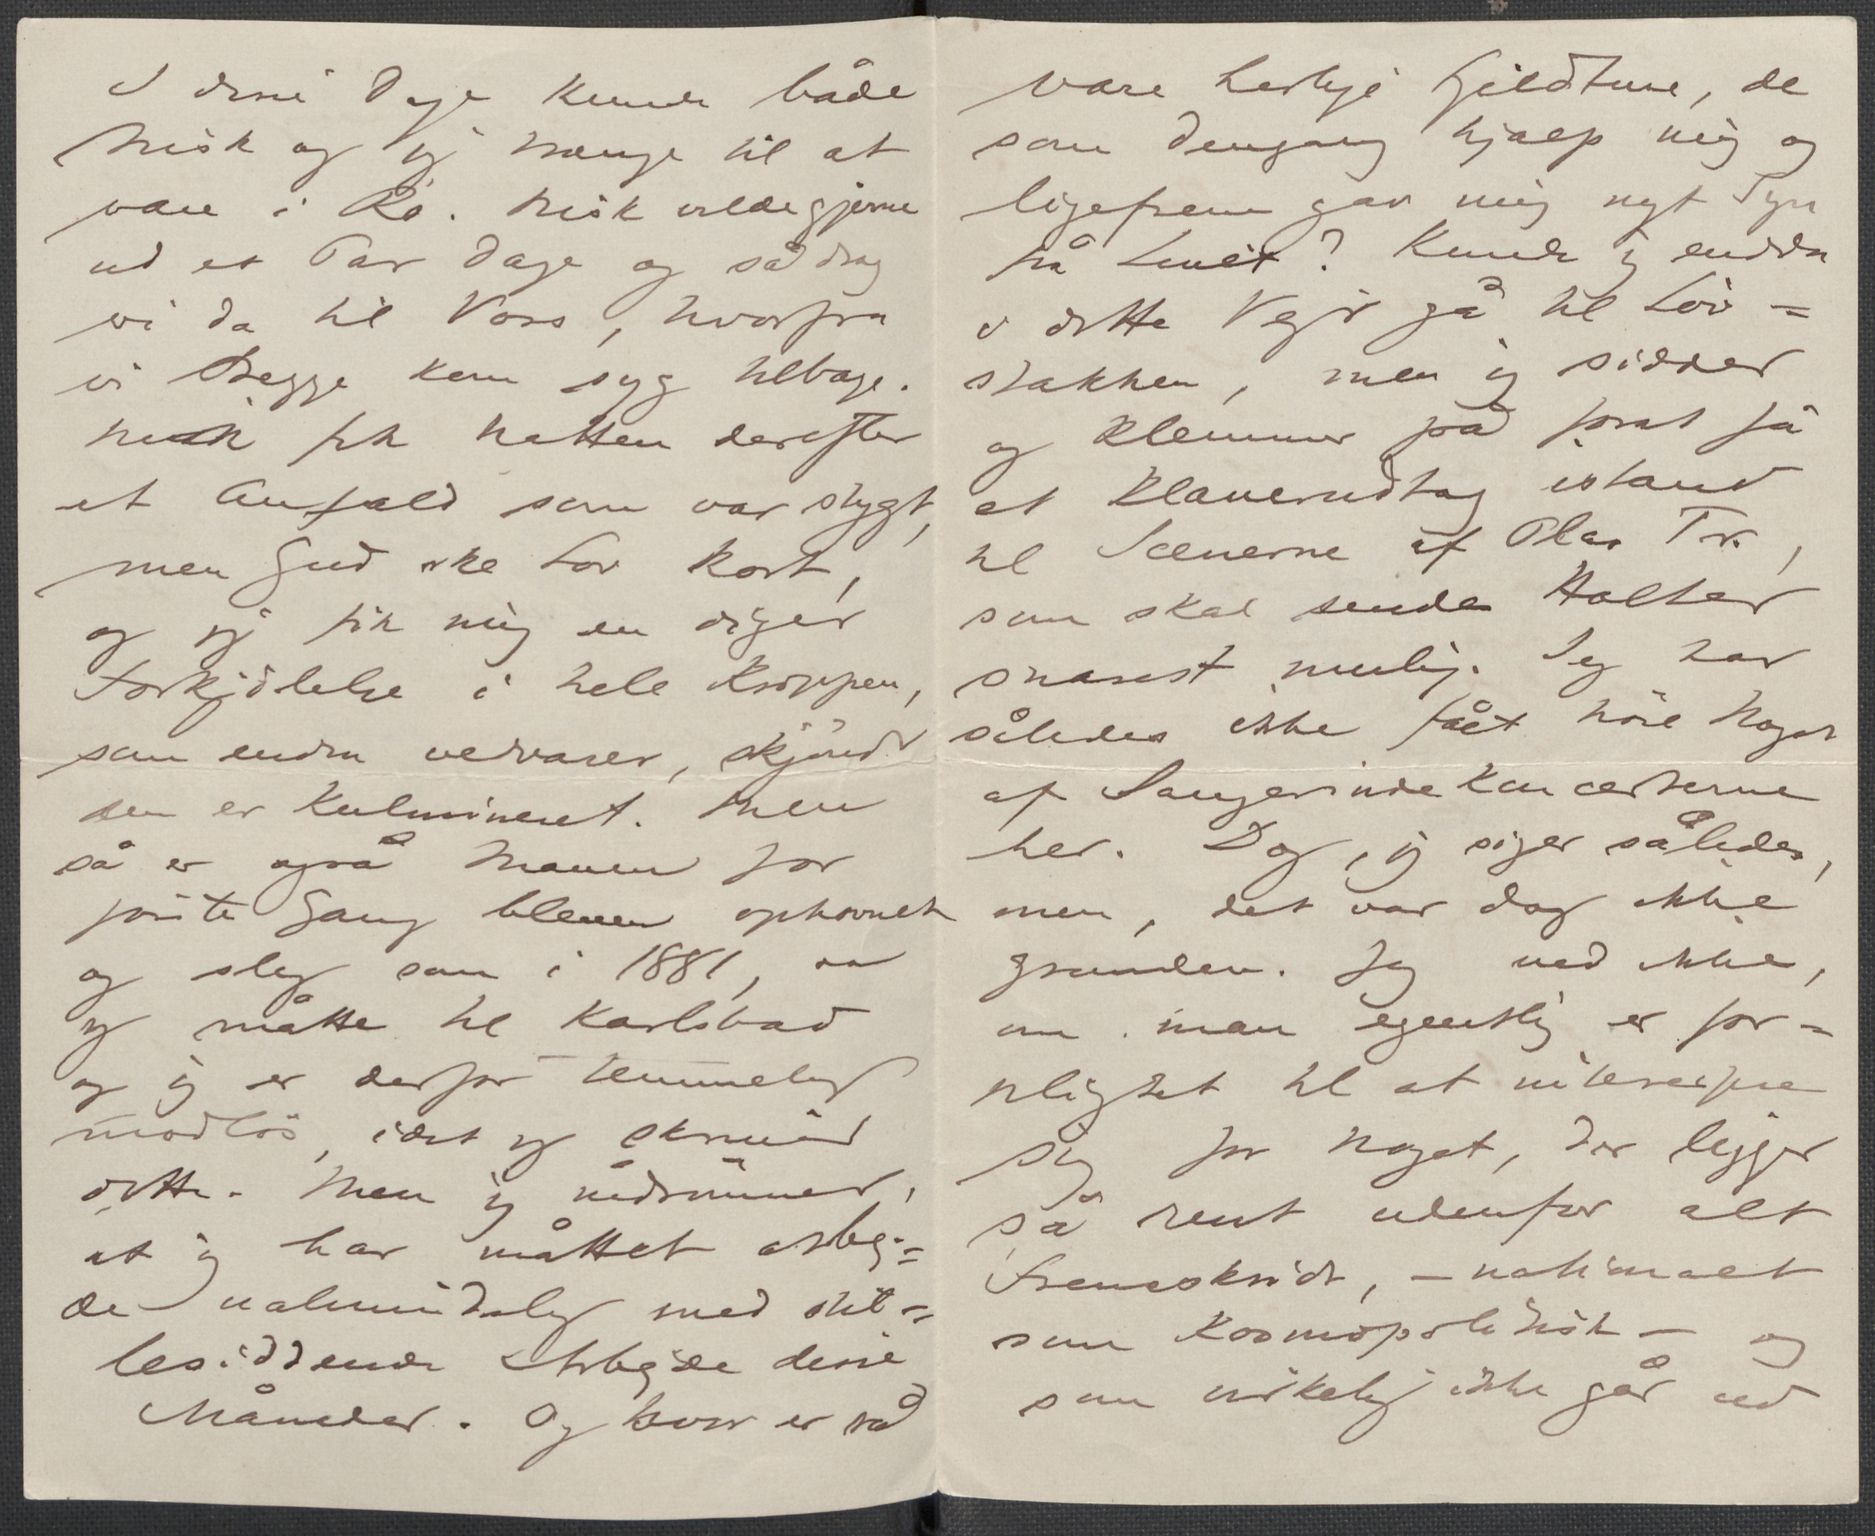 I disse Dage kunde både
Misk og jeg trænge til at
være i Ro. Misk vilde gjerne
ud et Par Dage og så drog
vi da til Voss, hvorfra
vi Begge kom syg tilbage.
Misk fik Natten derefter
et Anfald som var stygt,
men Gud ske Lov kort,
og jeg fik mig en diger
Forkjölelse i hele Kroppen,
som endnu vedvarer, skjöndt
den er kulmineret. Men
så er også Maven for
förste Gang bleven ophovnet
og sleg som i 1881, da
jeg måtte til Karlsbad
og jeg er derfor temmelig
modlös, idet jeg skriver
dette. Men jeg indrömmer,
at jeg har måttet arbej=
de ualmindelig med stil=
lesiddende Arbejde disse
Måneder. Og hvor er så
være herlige Fjeldture, de
som dengang hjalp mig og
ligefrem gav mig nyt Syn
på Livet? Kunde jeg endda
i dette Vejr gå til Löv=
stakken, men jeg sidder
og klemmer på forat få
et Klaverudtog istand
til Scenerne af Olav Tr.,
som skal sendes Holter
snarest mulig. Jeg har
således ikke fået höre Noget
af Sangerindekoncerterne
her. Dog, jeg siger således,
men, det var dog ikke
Grunden. Jeg ved ikke,
om man egentlig er for=
pligtet til at interessere
sig for Noget, der ligger
så rent udenfor alt
Fremskridt, – nationalt
som kosmopolitisk – og
som virkelig ikke går ud